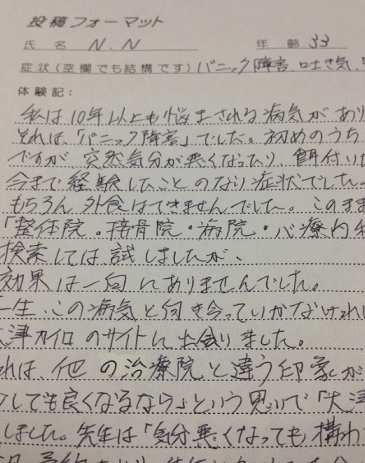 投稿フォーマット
氏名 N.N 年齢 33
症状(空欄でも結構です)パニック障害 吐き気
体験記:
私は10年以上も悩まされる病気があり
それは、「パニック障害」でした。初めのうち
ですが 突然気分が悪くなったり
今まで経験したことのない症状でした。
もちろん 外食はできませんでした。このまま
「整体院・接骨院・病院・心療内科
検索しては試しましたが、
効果は一向にありませんでした。
一生、この病気と向き合っていかなければ
津カイロのサイトに出会いました。
れは他の治療院と違う印象が
しても良くなるなら」という思いで「大津
しました。先生は「気分悪くなっても構わ